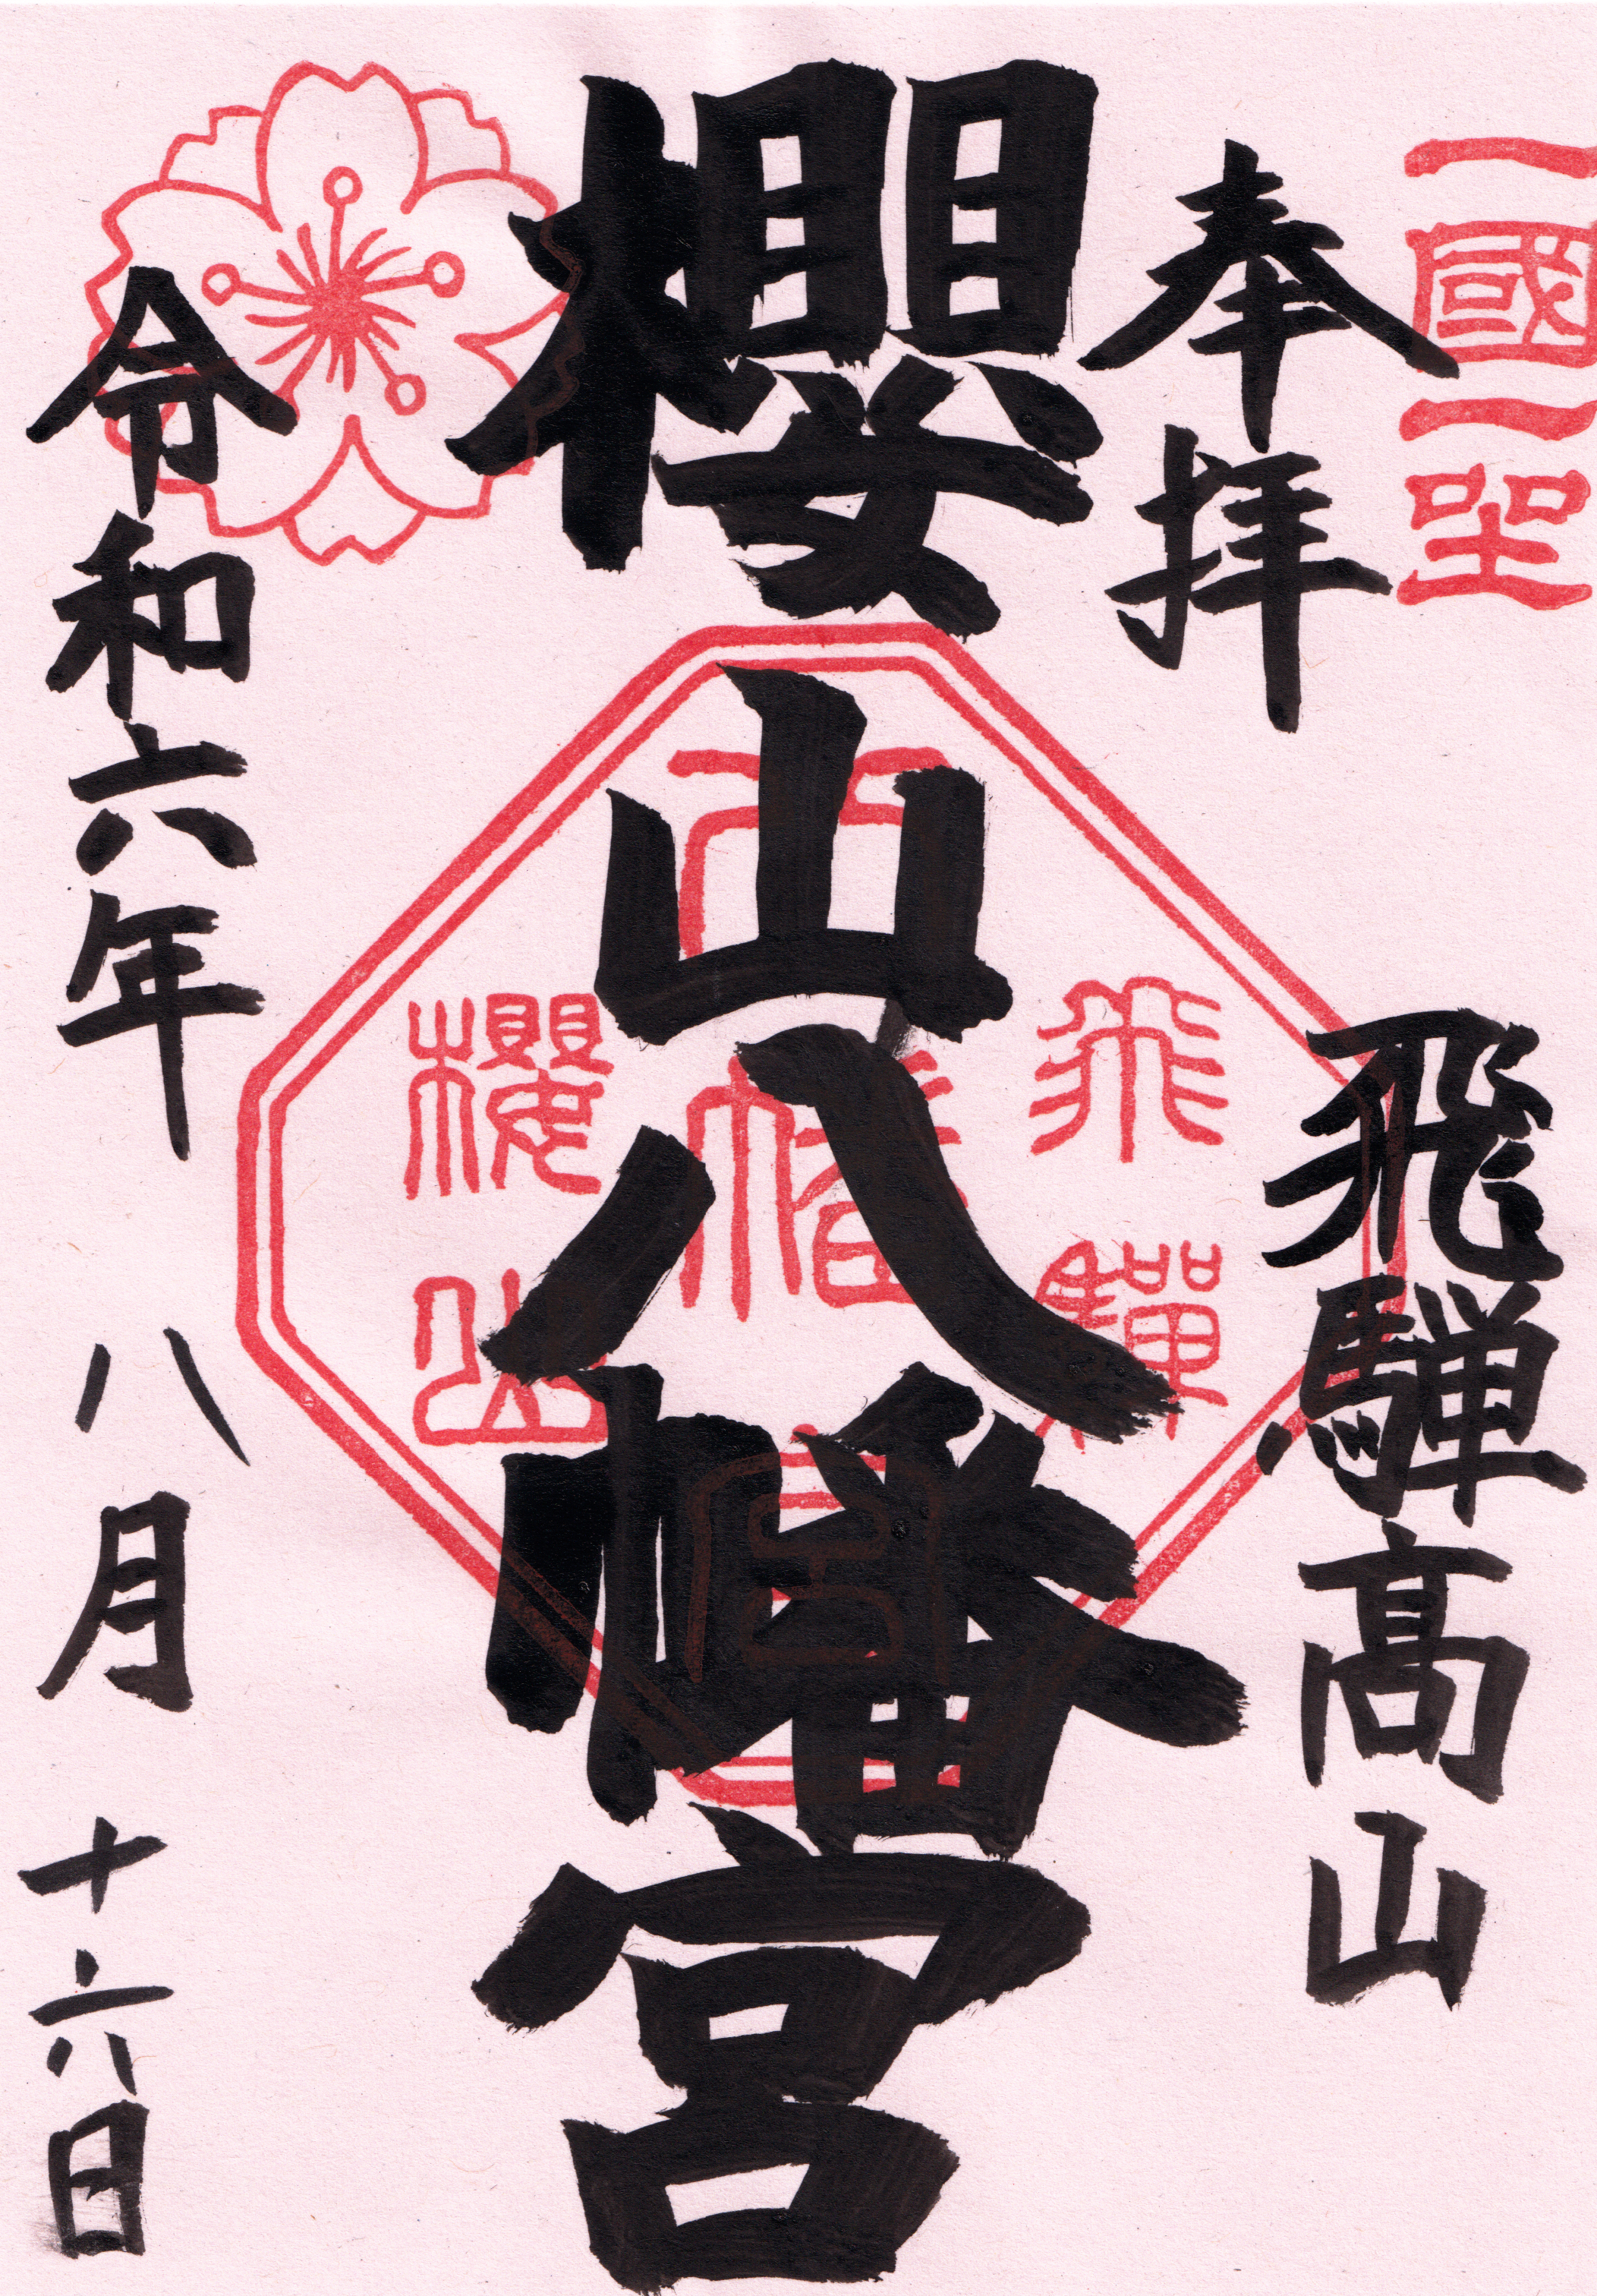 一國一
奉拝
飛騨髙山
櫻山八幡宮
令和六年八月十六日
飛驒
八幡宮
櫻山